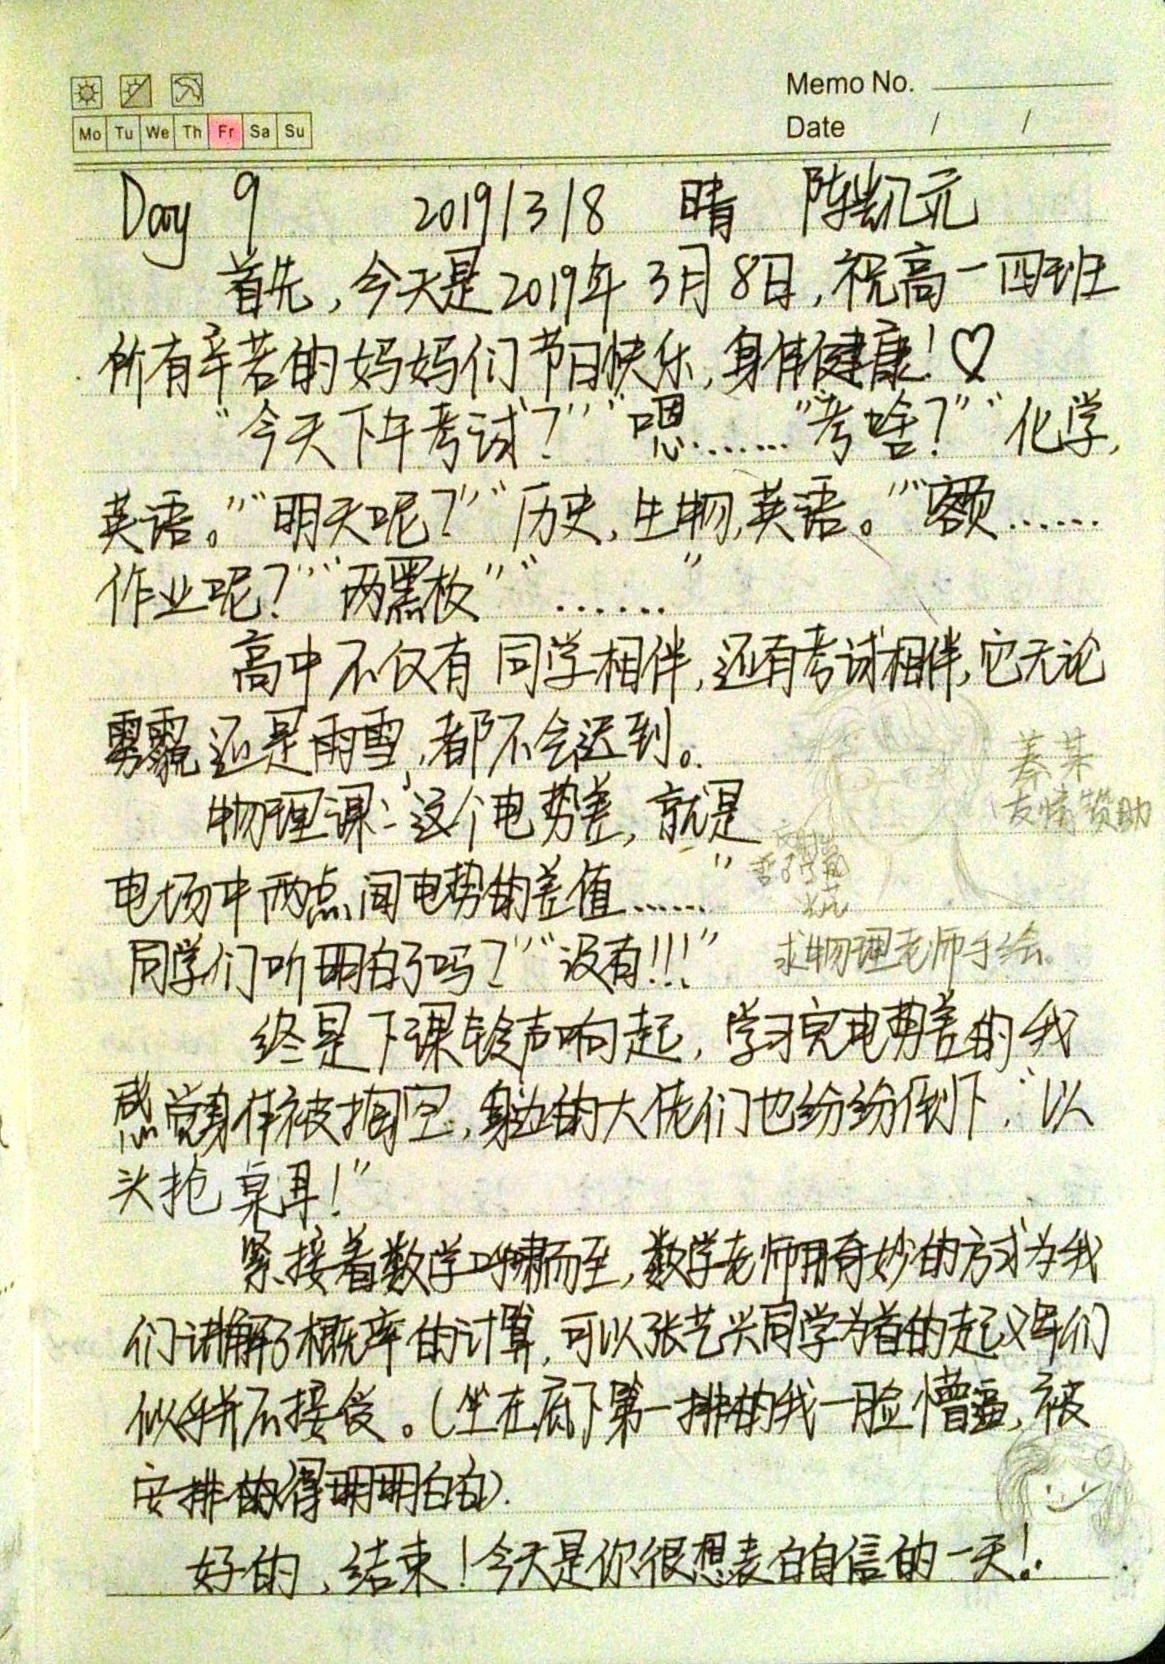 Memo No.
Mo Tu We Th Fr Sa Su
Date / /
Day 9 2019/3/8 晴 陈凯元
首先,今天是2019年3月8日,祝高一四班
所有辛苦的妈妈们节日快乐,身体健康!♡
“今天下午考试?”“嗯……”“考啥?”“化学,
英语。”“明天呢?”“历史,生物,英语。”“额……
作业呢?”“两黑板”“……”
高中不仅有同学相伴,还有考试相伴,它无论
雾霾还是雨雪,都不会迟到。
物理课:“这个电势差,就是
电场中两点间电势的差值……”
同学们听明白了吗?”“没有!!!”
秦某
友情赞助
求物理老师手绘。
终是下课铃声响起,学习完电势差的我
感觉身体被掏空,身边的大佬们也纷纷倒下,“以
头抢桌耳!”
紧接着数学呼啸而至,数学老师用奇妙的方式为我
们讲解了概率的计算,可以张艺兴同学为首的起义军们
似乎并不接受。(坐在底下第一排的我一脸懵逼,被
安排的得明明白白).
好的,结束!今天是你很想表白自信的一天!